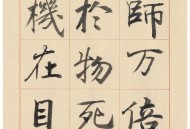 師万倍
於物死
機在目